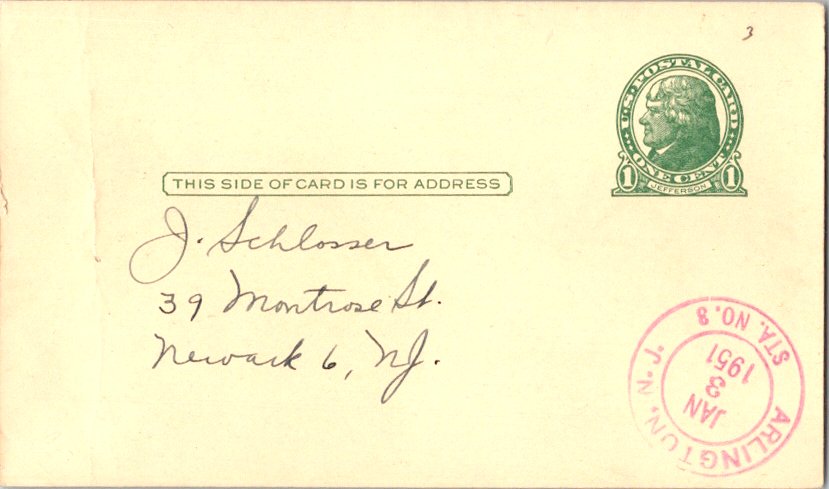 3
U.S. POSTAL CARD
ONE CENT
1 JEFFERSON 1
THIS SIDE OF CARD IS FOR ADDRESS
J. Schlosser
39 Montrose St.
Newark 6, NJ.
ARLINGTON, N.J.
STA. NO. 8
JAN
3
1951